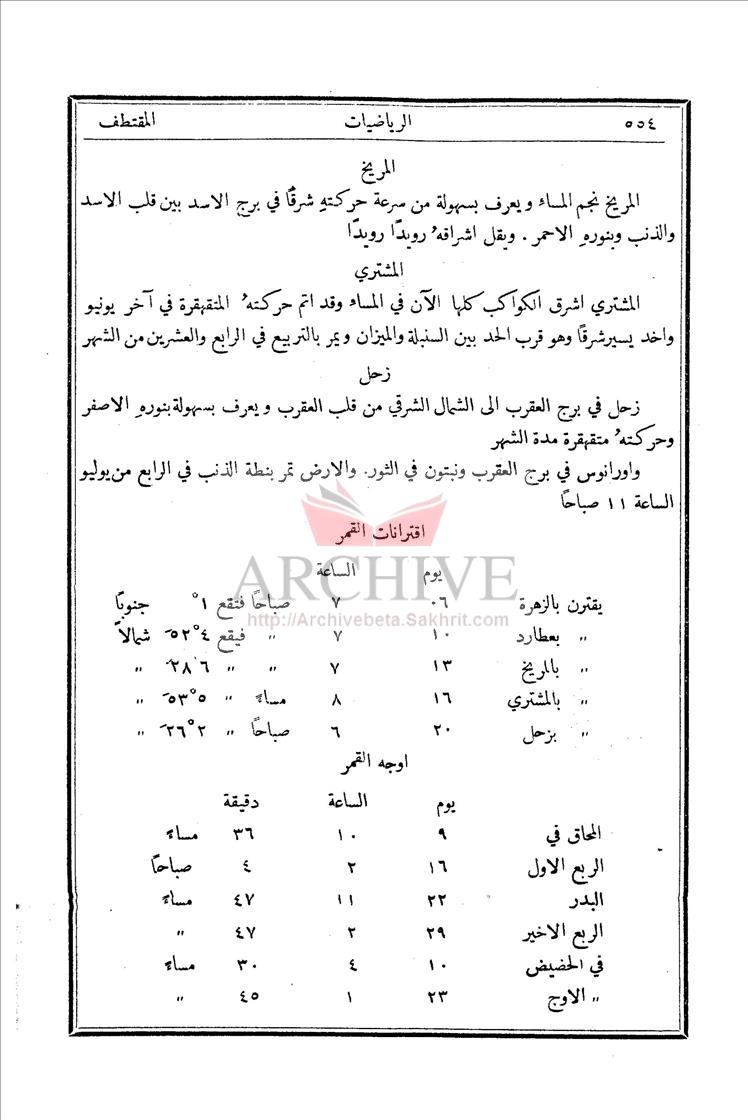 ٥٥٤ الرياضيات المقتطف
المريخ
المريخ نجم المساء ويعرف بسهولة من سرعة حركتهِ شرقًا في برج الاسد بين قلب الاسد
والذنب وبنورهِ الاحمر . ويقل اشراقهُ رويدًا رويدًا
المشتري
المشتري اشرق الكواكب كلها الآن في المساء وقد اتم حركتهُ المتقهقرة في آخر يونيو
واخذ يسير شرقًا وهو قرب الحد بين السنبلة والميزان ويمر بالتربيع في الرابع والعشرين من الشهر
زحل
زحل في برج العقرب الى الشمال الشرقي من قلب العقرب ويعرف بسهولة بنورهِ الاصفر
وحركتهُ متقهقرة مدة الشهر
واورانوس في برج العقرب ونبتون في الثور. والارض تمر بنقطة الذنب في الرابع من يوليو
الساعة ١١ صباحًا
اقترانات القمر
ARCHIVE
http://Archivebeta.Sakhrit.com
يوم الساعة
يقترن بالزهرة ٠٦ ٧ صباحًا فتقع ١° جنوبًا
" بعطارد ١٠ ٧ " فيقع ٤° ٥٢َ شمالاً
" بالمريخ ١٣ ٧ " " ٦ ٢٨َ "
" بالمشتري ١٦ ٨ مساءً " ٥° ٥٣َ "
" بزحل ٢٠ ٦ صباحًا " ٢° ٢٦َ "
اوجه القمر
يوم الساعة دقيقة
المحاق في ٩ ١٠ ٣٦ مساءً
الربع الاول ١٦ ٢ ٤ صباحًا
البدر ٢٢ ١١ ٤٧ مساءً
الربع الاخير ٢٩ ٢ ٤٧ "
في الحضيض ١٠ ٤ ٣٠ مساءً
" الاوج ٢٣ ١ ٤٥ "